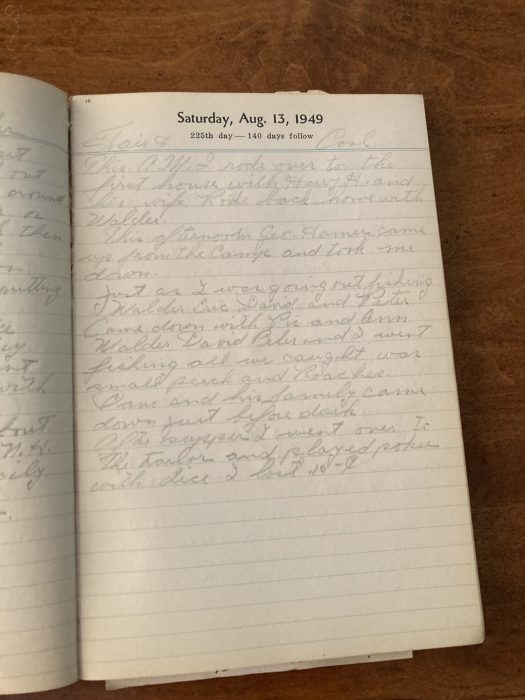 16
Saturday, Aug. 13, 1949
225th day — 140 days follow
Fair & Cool
This A.M. I rode over to the
first house with Harry H. and
his wife. Rode back home with
Walder.
This afternoon Geo. Hamer came
up from the Camp and took me
down
Just as I was going out fishing
Walder Eric, and Peter
Came down with Vic and Ann
Walder David Peter and I went
fishing all we caught was
small perch and Roaches.
and his family came
down just before dark
After supper I went over to
the trailor and played poker
with dice I lost
out
out
around
or
then
putting
with
bout
N.H.